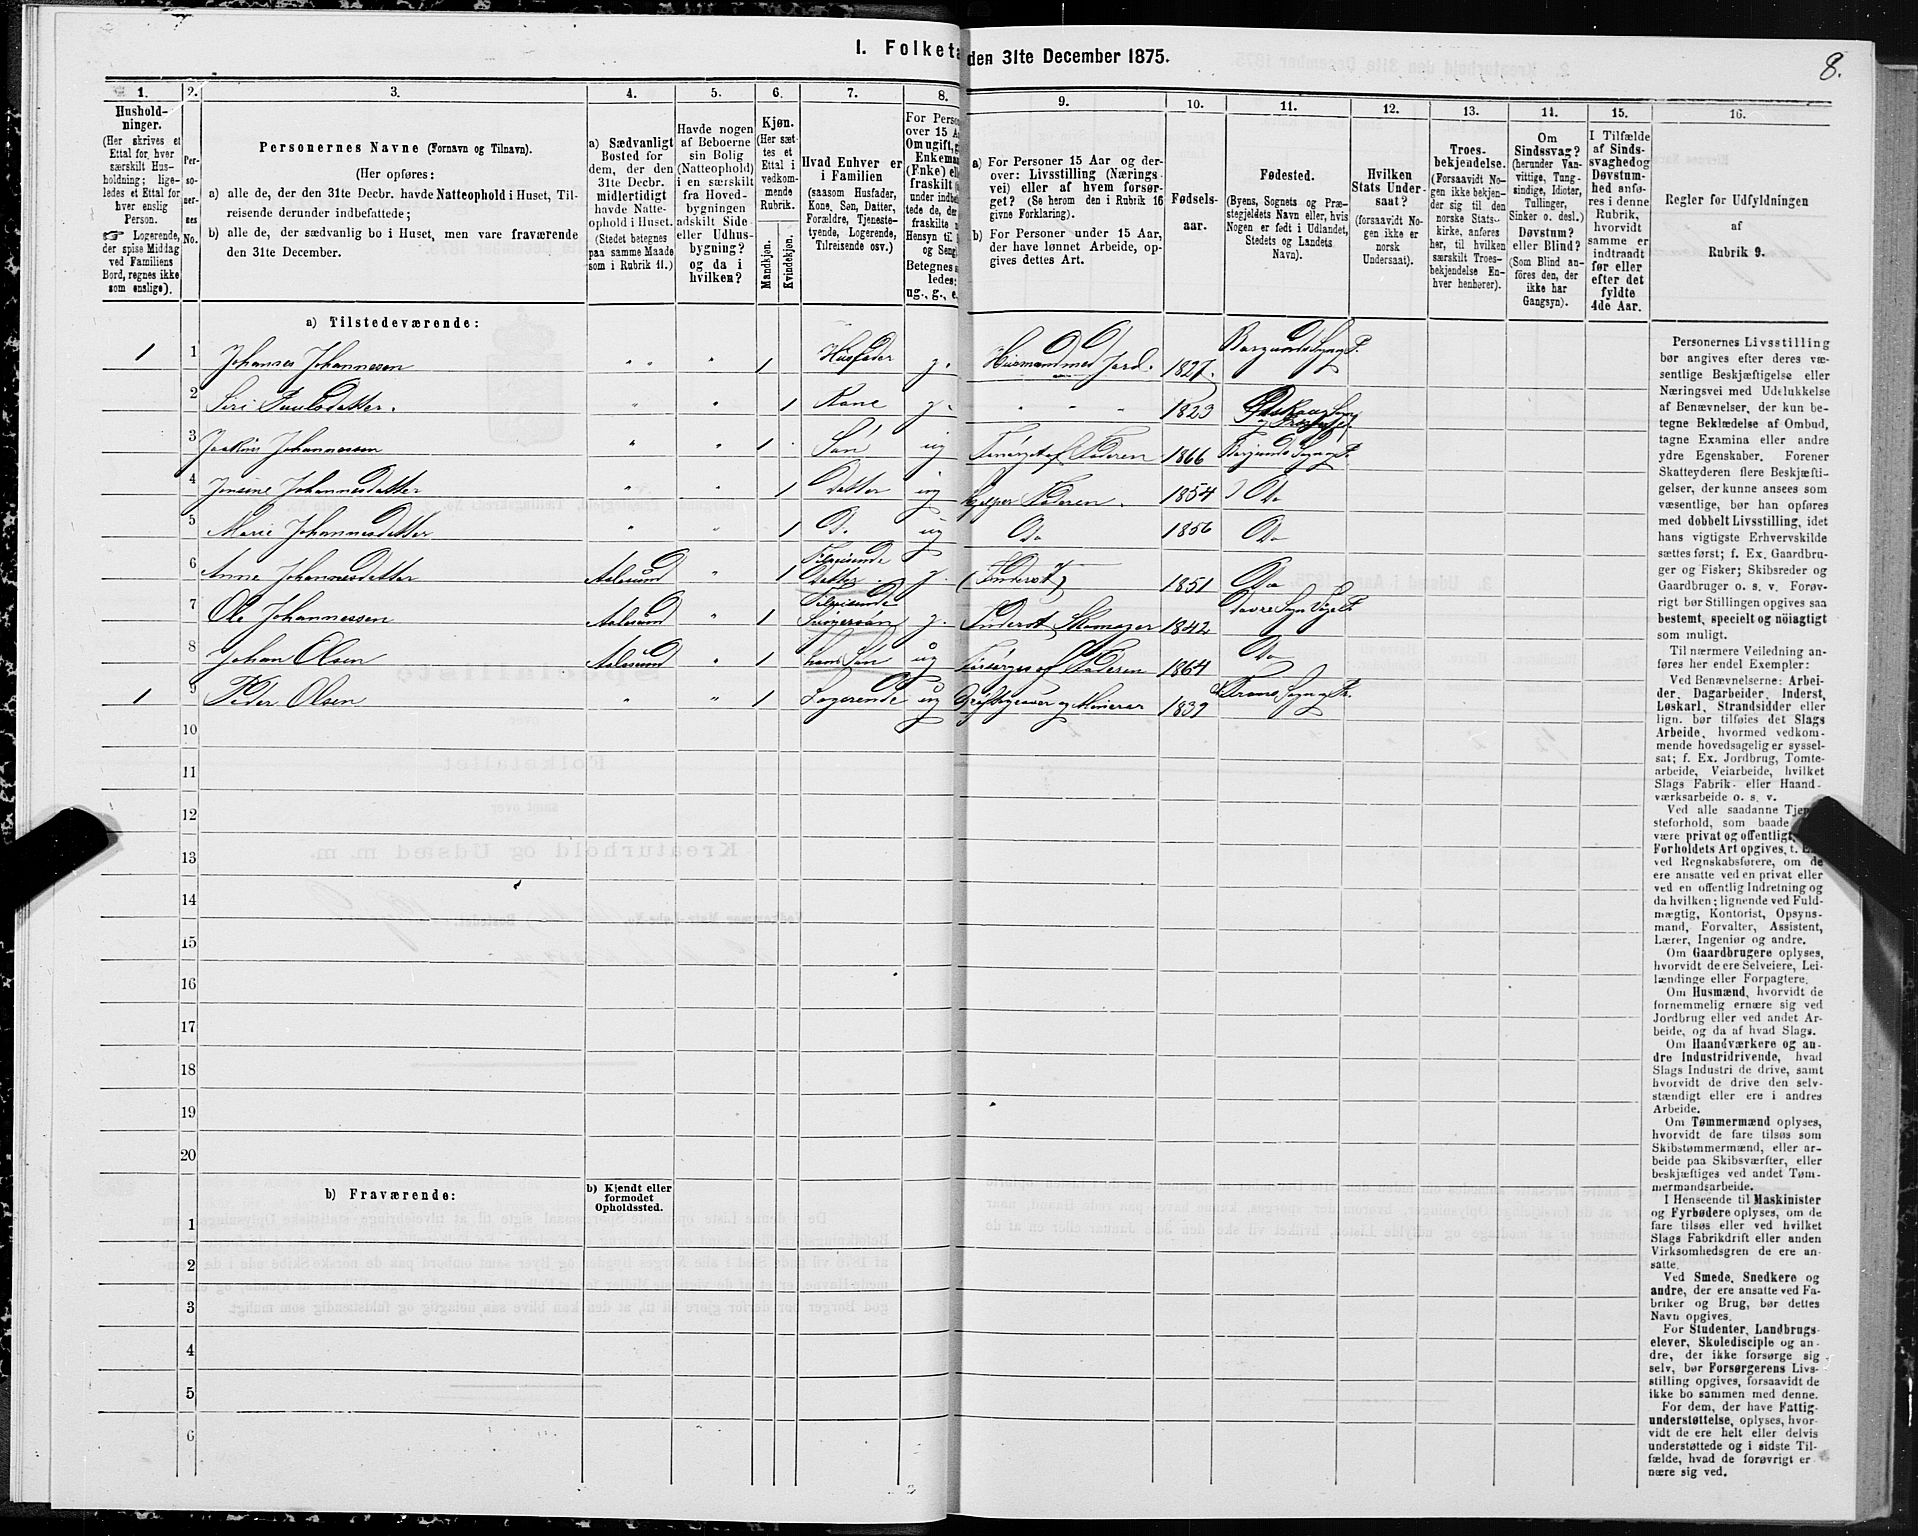 I. Folketa den 31te December 1875.
8.
1. 2. 3. 4. 5. 6. 7. 8. 9. 10. 11. 12. 13. 14. 15. 16.
Hushold-
ninger.
(Her skrives et
Ettal for hver
særskilt Hus-
holdning; lige-
ledes et Ettal for
hver enslig
Person.
☞ Logerende,
der spise Middag
ved Familiens
Bord, regnes ikke
som enslige).
Per-
so-
ner-
nes
No.
Personernes Navne (Fornavn og Tilnavn).
(Her opføres:
a) alle de, der den 31te Decbr. havde Natteophold i Huset, Til-
reisende derunder indbefattede;
b) alle de, der sædvanlig bo i Huset, men vare fraværende
den 31te December.
a) Sædvanligt
Bosted for
dem, der den
31te Decbr.
midlertidigt
havde Natte-
ophold i Huset.
(Stedet betegnes
paa samme Maade
som i Rubrik 11.)
Havde nogen
af Beboerne
sin Bolig
(Natteophold)
i en særskilt
fra Hoved-
bygningen
adskilt Side-
eller Udhus-
bygning?
og da i
hvilken?
Kjøn.
(Her sæt-
tes et
Ettal i
vedkom-
mende
Rubrik.
Mandkjøn.
Kvindekjøn.
Hvad Enhver er
i Familien
(saasom Husfader,
Kone, Søn, Datter,
Forældre, Tjeneste-
tyende, Logerende,
Tilreisende osv.)
For Perso
over 15 A
Om ugift, g
Enkema
(Enke) ell
fraskilt
under indbe
tede de, de
fraskilte
Hensyn til
og Seng
Betegnes s
ledes:
ug., g., e.
a) For Personer 15 Aar og der-
over: Livsstilling (Nærings-
vei) eller af hvem forsør-
get? (Se herom den i Rubrik 16
givne Forklaring).
b) For Personer under 15 Aar,
der have lønnet Arbeide, op-
gives dettes Art.
Fødsels-
aar.
Fødested.
(Byens, Sognets og Præ-
stegjeldets Navn eller, hvis
Nogen er født i Udlandet,
Stedets og Landets
Navn).
Hvilken
Stats Under-
saat?
(forsaavidt No-
gen ikke er
norsk
Undersaat).
Troes-
bekjendelse.
(Forsaavidt No-
gen ikke bekjen-
der sig til den
norske Stats-
kirke, anføres
her, til hvilken
særskilt Troes-
bekjendelse En-
hver henhører).
Om
Sindssvag?
(herunder Van-
vittige, Tung-
sindige, Idioter,
Tullinger,
Sinker o. desl.)
Døvstum?
eller Blind?
(Som Blind an-
føres den, der
ikke har
Gangsyn).
I Tilfælde
af Sinds-
svaghed og
Døvstum-
hed anfø-
res i denne
Rubrik,
hvorvidt
samme er
indtraadt
før eller
efter det
fyldte
4de Aar.
Regler for Udfyldningen
af
Rubrik 9.
a) Tilstedeværende:
1 1 Johannes Johannesen " " " 1 Husfader g. Husmand med Jord. 1827. Borgunds Sogn P.
2 Siri Paulsdatter. " " 1 Kone g. " " " 1823
3 Johannessen " " 1 Søn ug Forsørget af Faderen 1866 Borgunds Sogn P.
4 Jensine Johannesdatter " " 1 Datter ug hjelper Faderen. 1854 Do
5 Marie Johannesdatter " " 1 D. ug Do 1856 Do
6 Anne Johannesdatter Aalesund " 1 Tilreisende Datter g. (Inderst) 1851 Do
7 Ole Johannessen Aalesund " 1 Tilreisende Svigersøn g. Inderst Skomager 1842
8 Johan Olsen Aalesund " 1 hans Søn ug Forsørges af Faderen 1864 Do
1 9 Peder Olsen " " 1 Logerende ug og Minerer 1839
10
11
12
13
14
15
16
17
18
19
20
b) Fraværende:
b) Kjendt eller
formodet
Opholdssted.
1
2
3
4
5
6
Personernes Livsstilling
bør angives efter deres væ-
sentlige Beskjæftigelse eller
Næringsvei med Udelukkelse
af Benævnelser, der kun be-
tegne Beklædelse af Ombud,
tagne Examina eller andre
ydre Egenskaber. Forener
Skatteyderen flere Beskjæfti-
gelser, der kunne ansees som
væsentlige, bør han opføres
med dobbelt Livsstilling, idet
hans vigtigste Erhvervskilde
sættes først; f. Ex. Gaardbru-
ger og Fisker; Skibsreder og
Gaardbruger o. s. v. Forøv-
rigt bør Stillingen opgives saa
bestemt, specielt og nöiagtigt
som muligt.
Til nærmere Veiledning an-
føres her endel Exempler:
Ved Benævnelserne: Arbei-
der, Dagarbeider, Inderst,
Løskarl, Strandsidder eller
lign. bør tilføies det Slags
Arbeide, hvormed vedkom-
mende hovedsagelig er syssel-
sat; f. Ex. Jordbrug, Tomte-
arbeide, Veiarbeide, hvilket
Slags Fabrik- eller Haand-
værksarbeide o. s. v.
Ved alle saadanne Tje
steforhold, som baade
være privat og offentligt,
Forholdets Art opgives, t. E
ved Regnskabsførere, om de
ere ansatte ved en privat eller
ved en offentlig Indretning og
da hvilken; lignende ved Fuld-
mægtig, Kontorist, Opsyns-
mand, Forvalter, Assistent,
Lærer, Ingeniør og andre.
Om Gaardbrugere oplyses,
hvorvidt de ere Selveiere, Lei-
lændinge eller Forpagtere.
Om Husmænd, hvorvidt de
fornemmelig ernære sig ved
Jordbrug eller ved andet Ar-
beide, og da af hvad Slags.
Om Haandværkere og an-
dre Industridrivende, hvad
Slags Industri de drive, samt
hvorvidt de drive den selv-
stændigt eller ere i andres
Arbeide.
Om Tømmermænd oplyses,
hvorvidt de fare tilsøs som
Skibstømmermænd, eller ar-
beide paa Skibsværfter, eller
beskjæftiges ved andet Tøm-
mermandsarbeide.
I Henseende til Maskinister
og Fyrbødere oplyses, om de
fare tilsøs eller ved hvilket
Slags Fabrikdrift eller anden
Virksomhedsgren de ere an-
satte.
Ved Smede, Snedkere og
andre, der ere ansatte ved Fa-
briker og Brug, bør dettes
Navn opgives.
For Studenter, Landbrugs-
elever, Skoledisciple og an-
dre, der ikke forsørge sig
selv, bør Forsørgerens Livs-
stilling opgives, forsaavidt de
ikke bo sammen med denne.
For dem, der have Fattig-
understøttelse, oplyses, hvor-
vidt de ere helt eller delvis
understøttede og i sidste Til-
fælde, hvad de forøvrigt er
nære sig ved.